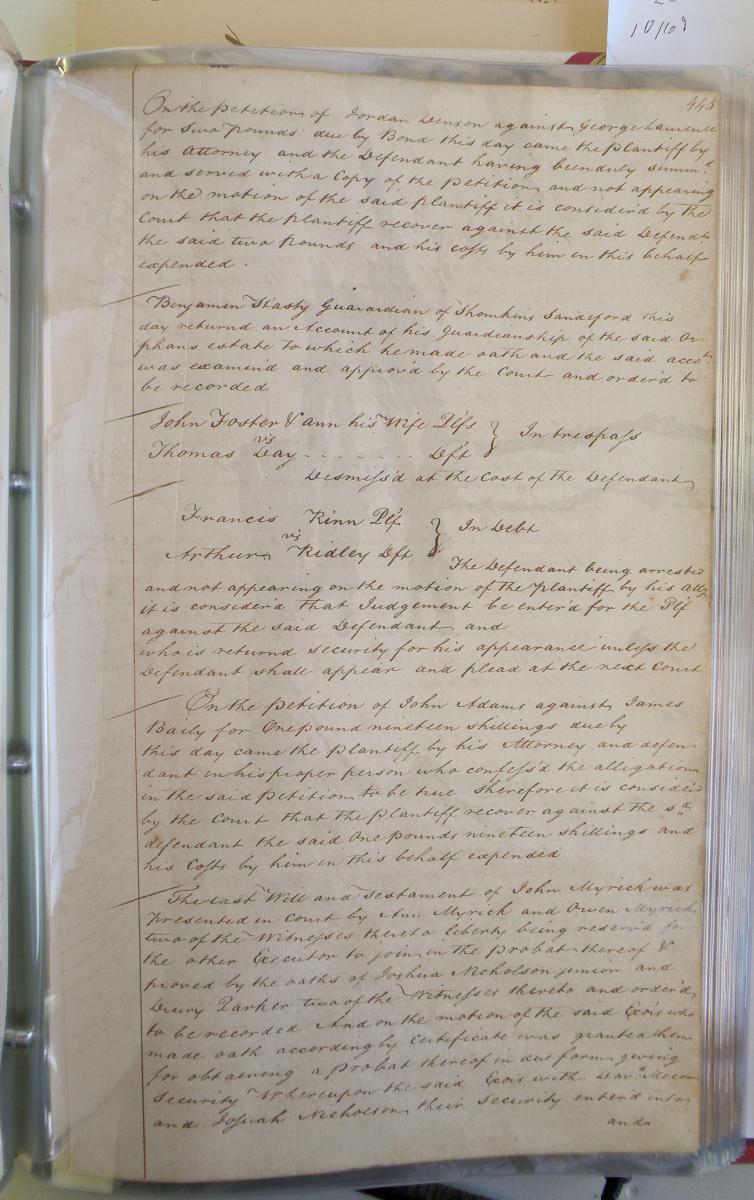 10/69
445
On the Petition of Jordan Denson against George Lawrence
for Two Pounds due by Bond this day came the Plantiff by
his Attorney and the Defendant having been duly summd
and served with a Copy of the Petition and not appearing
on the motion of the said plantiff it is consider'd by the
Court that the plantiff recover against the said Defendt
the said two Pounds and his costs by him in this behalf
expended.
Benjamin Guarardian of Sandeford this
day returnd an Account of his Guardianship of the said Or-
phans estate to which he made oath and the said accot
was examin'd and approv'd by the Court and order'd to
be recorded
John Foster & ann his Wife Plfs } In trespass
vs
Thomas Day - - - - - - - - Dft
Dismiss'd at the Cost of the Defendant
Francis Plf } In Debt
vs
Arthur Ridley Dft
The Defendant being arrested
and not appearing on the motion of the Plantiff by his atty
it is consider'd that Judgement be enter'd for the Plf
against the said Defendant and
who is returnd security for his appearance unless the
Defendant shall appear and plead at the next Court
On the petition of John Adams against James
Baily for One pound nineteen shillings due by
this day came the plantiff by his Attorney and defen-
dant in his proper person who confess'd the alligation
in the said Petition to be true therefore it is consider'd
by the Court that the plantiff recover against the sd
defendant the said One pounds nineteen shillings and
his Costs by him in this behalf expended
The Last Will and Testament of John Myrich was
Presented in Court by Ann Myrich and Owen Myrich
two of the Witnesses thereto liberty being reserv'd for
the other Executor to join in the Probat thereof &
proved by the oaths of Joshua Nicholson junior and
Drury Parker two of the Witnesses thereto and order'd
to be recorded And on the motion of the said Exors who
made oath according by Certificate was granted them
for obtaening a Probat thereof in due form giveing
Security Whereupon the said Exors with
and Josuah Nicholson their Security enterd into
and